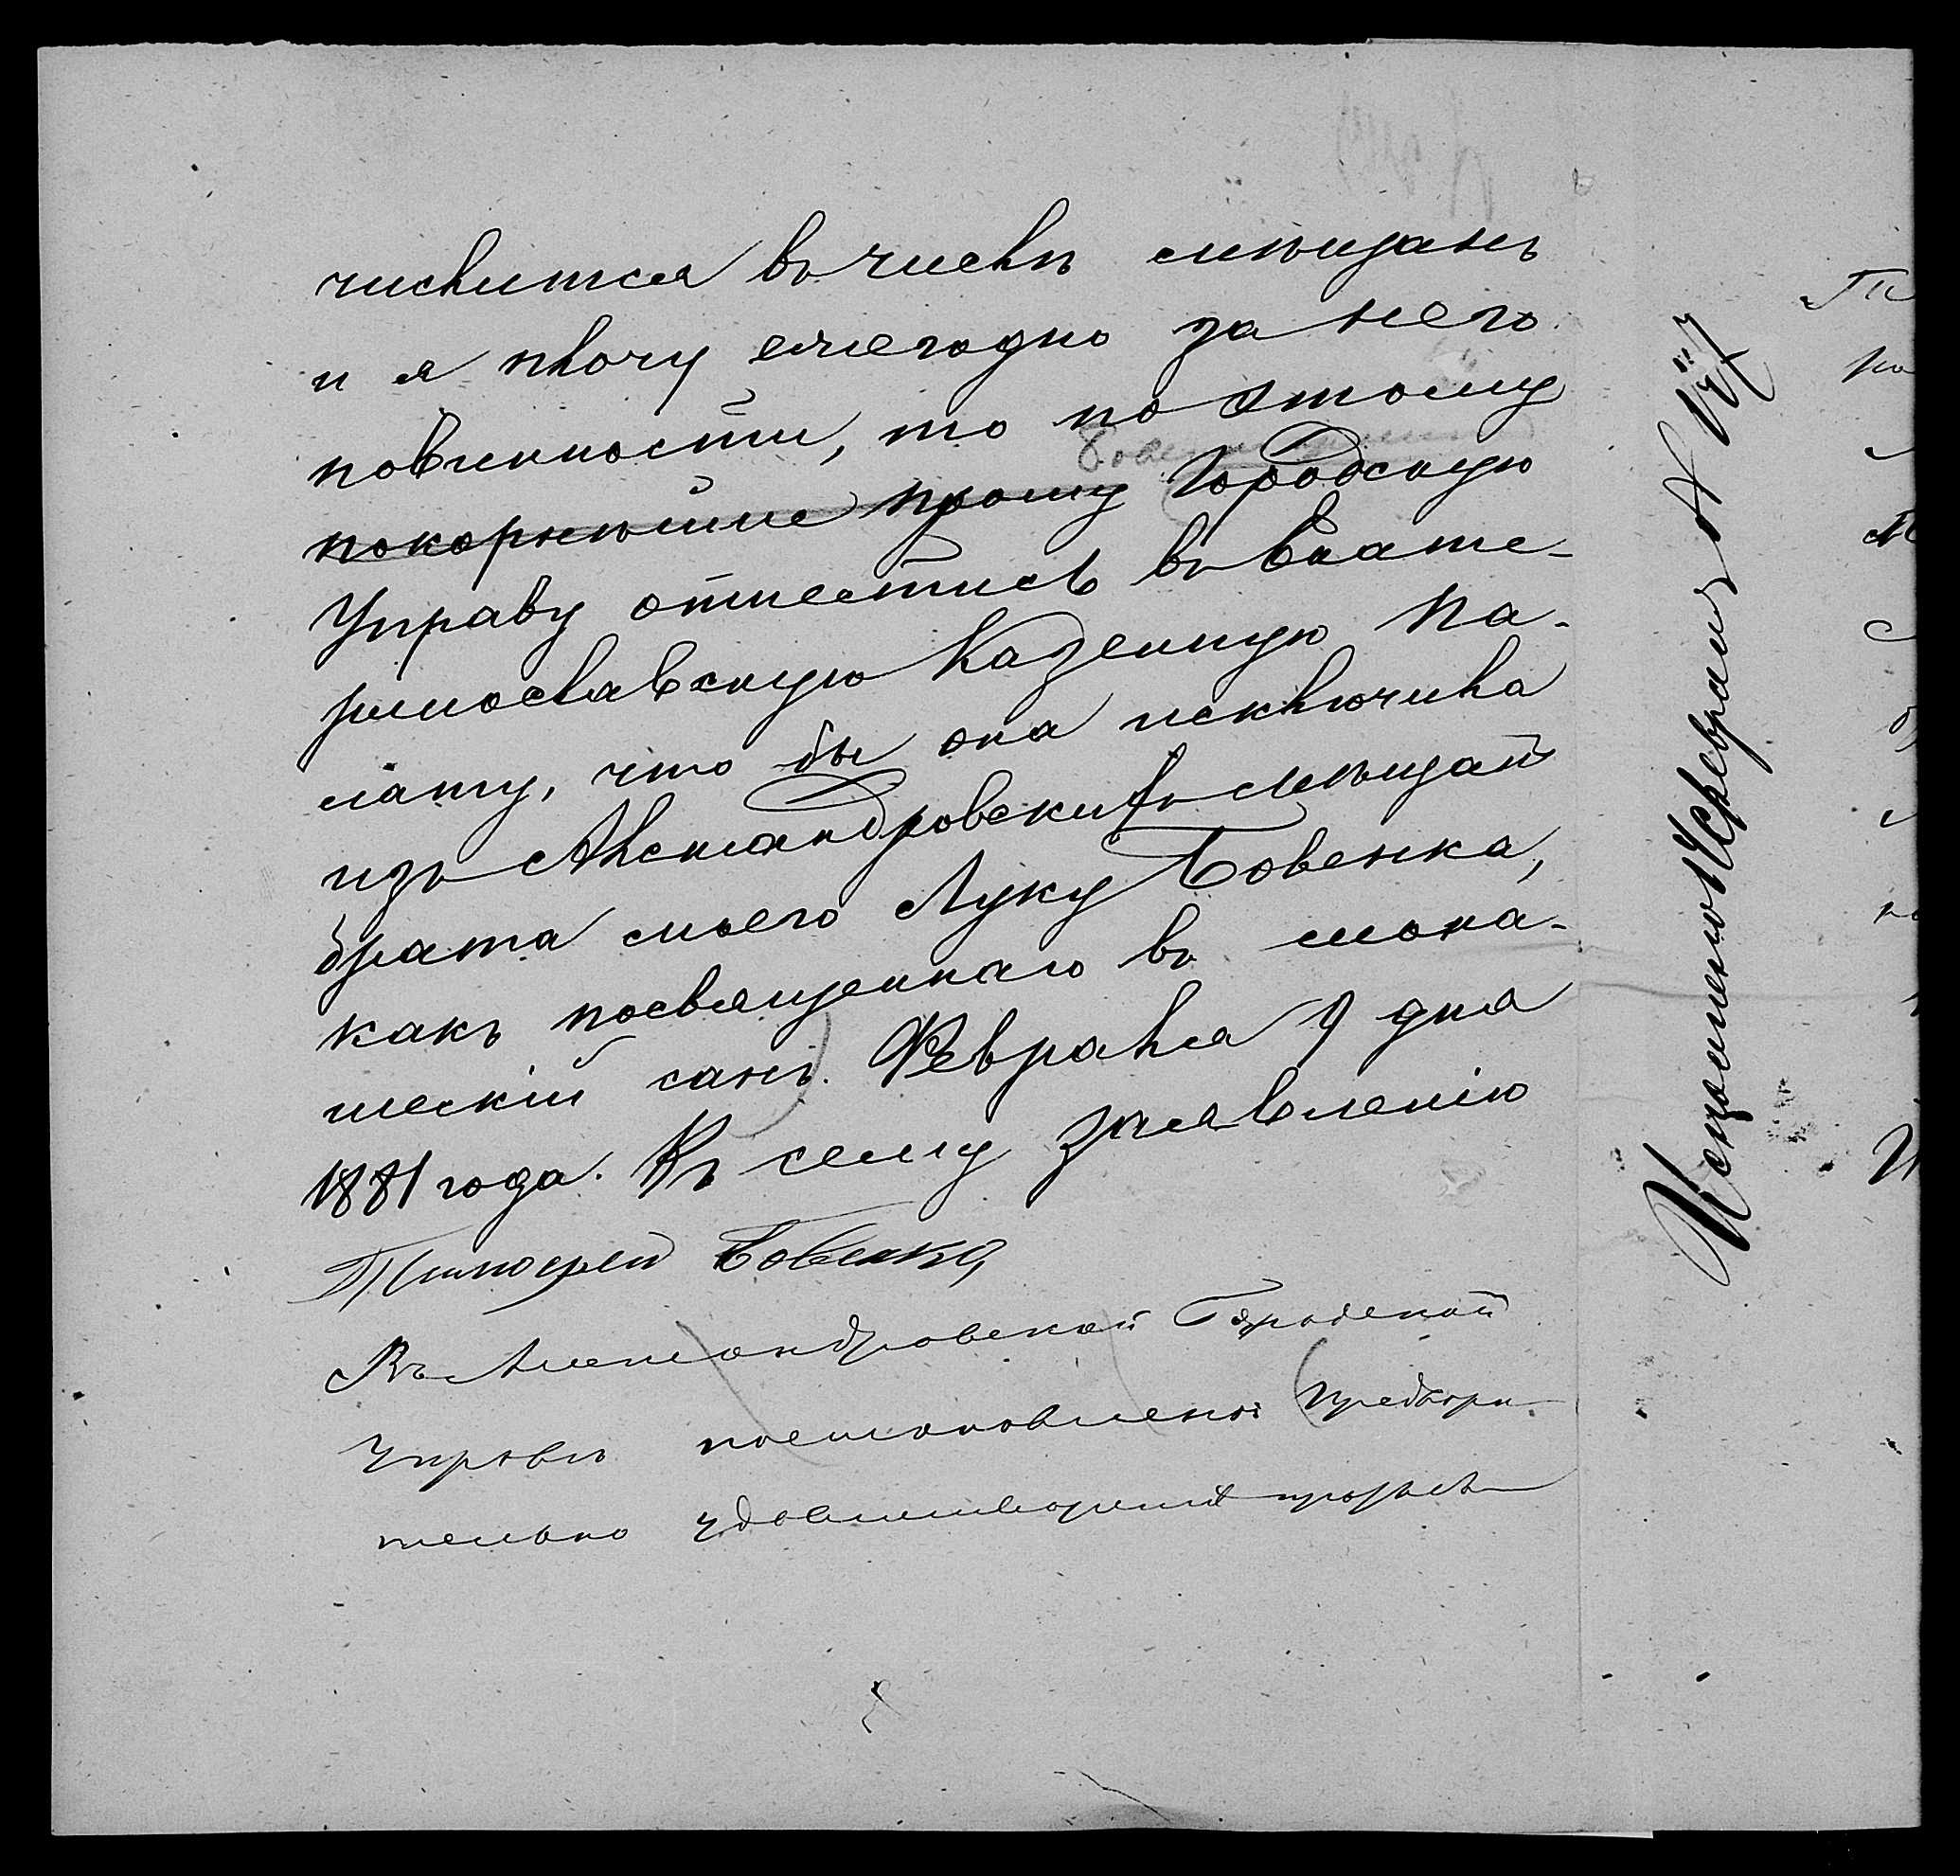 числится въ числѣ мѣщанъ
и я плочу ежегодно за него
повинности, то по этому
покорнѣйше прошу Городскую
Управу отнестись въ Екате-
ринославскую Казенную Па-
лату, что бы она исключила
изъ Александровскихъ мѣщан
брата моего Луку Бовенка,
какъ посвященнаго въ мона-
шескій санъ. Февраля 9 дня
1881 года. Къ сему заявленію
Тимофей Бовенко
Въ Александровской Городской
Управѣ постановлено: Предвари-
тельно удовлетворенія
Исполнено 14 Февраля № 147